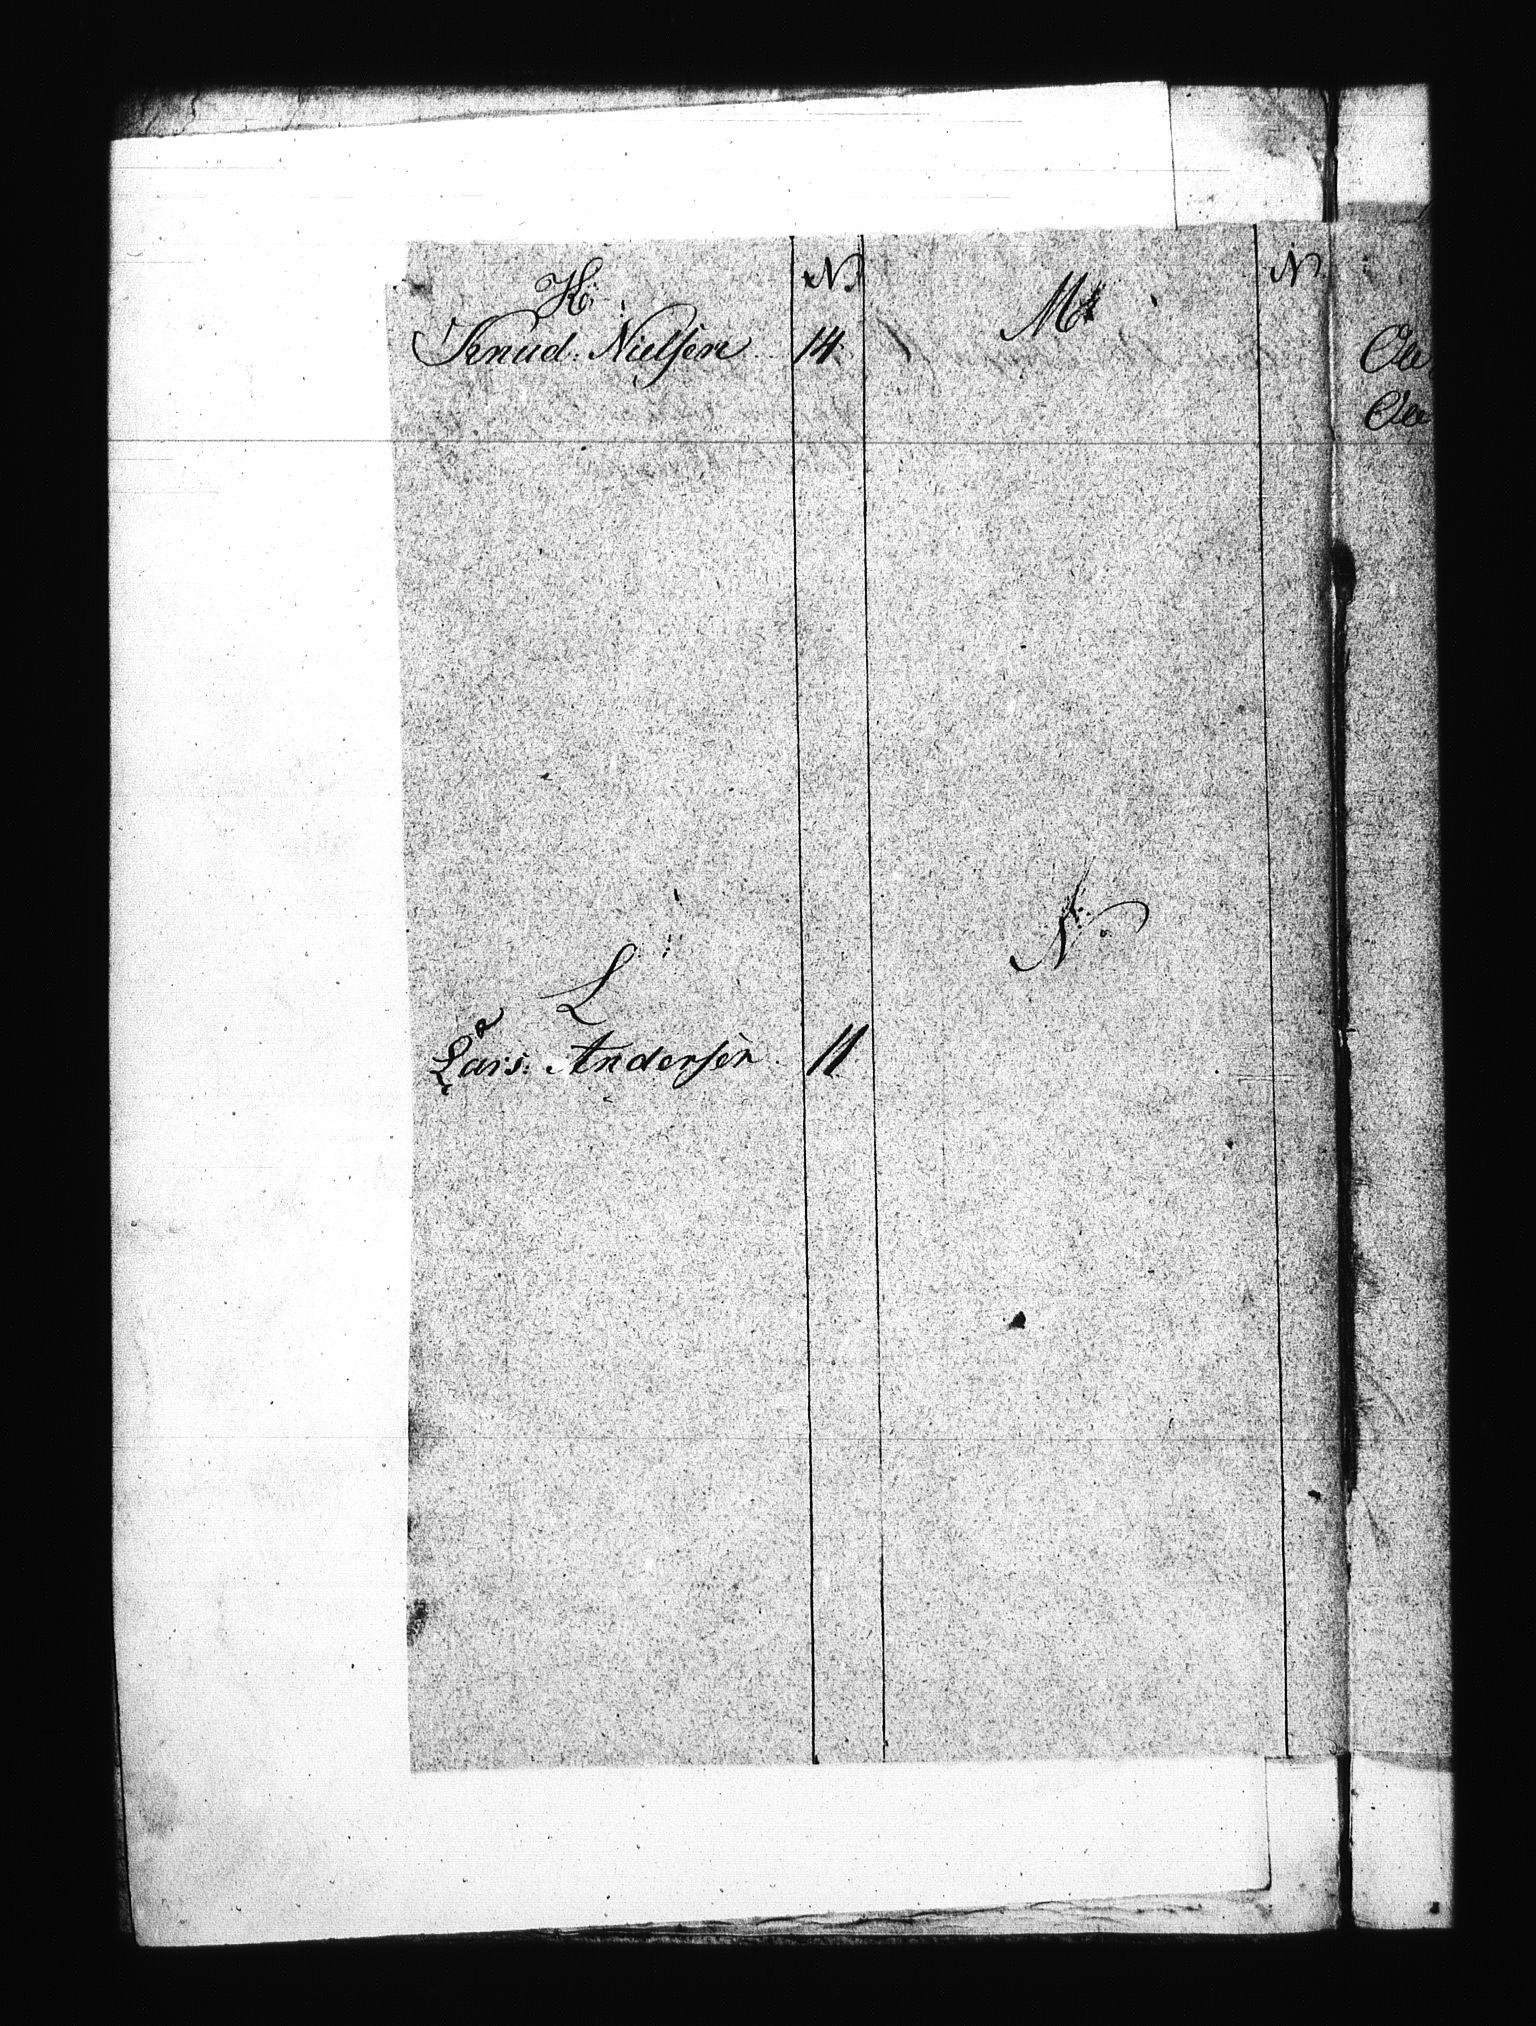 K
N
Knud Nielsen 14
L
Lars Andersen 11
M
N
N
Ole
Ole